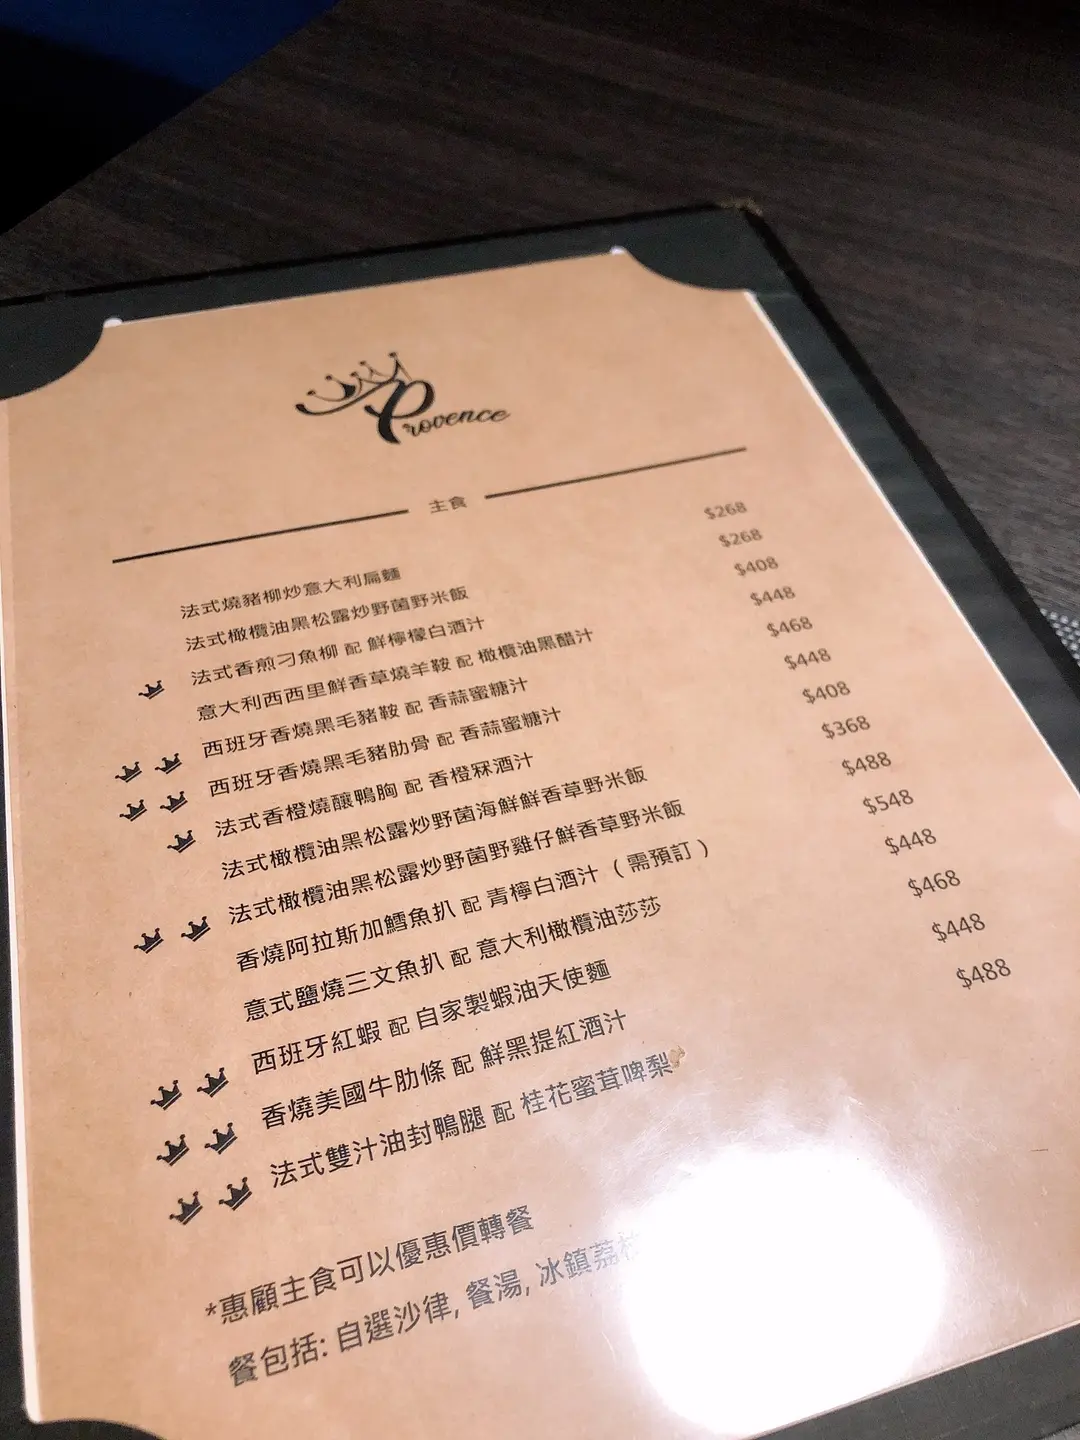 Provence
主食
法式燒豬柳炒意大利扁麵 $268
法式橄欖油黑松露炒野菌野米飯 $268
法式香煎刁魚柳 配 鮮檸檬白酒汁 $408
意大利西西里鮮香草燒羊鞍 配 橄欖油黑醋汁 $448
西班牙香燒黑毛豬鞍 配 香蒜蜜糖汁 $468
西班牙香燒黑毛豬肋骨 配 香蒜蜜糖汁 $448
法式香橙燒釀鴨胸 配 香橙冧酒汁 $408
法式橄欖油黑松露炒野菌海鮮鮮香草野米飯 $368
法式橄欖油黑松露炒野菌野雞仔鮮香草野米飯 $488
香燒阿拉斯加鱈魚扒 配 青檸白酒汁（需預訂） $548
意式鹽燒三文魚扒 配 意大利橄欖油莎莎 $448
西班牙紅蝦 配 自家製蝦油天使麵 $468
香燒美國牛肋條 配 鮮黑提紅酒汁 $448
法式雙汁油封鴨腿 配 桂花蜜茸啤梨 $488
*惠顧主食可以優惠價轉餐
餐包括: 自選沙律, 餐湯, 冰鎮荔枝